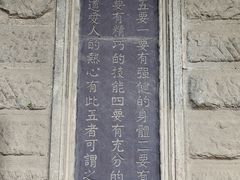 五要一要有強健的身體二要有
要有精巧的技能四要有充分的
道愛人的熱心有此五者可謂之